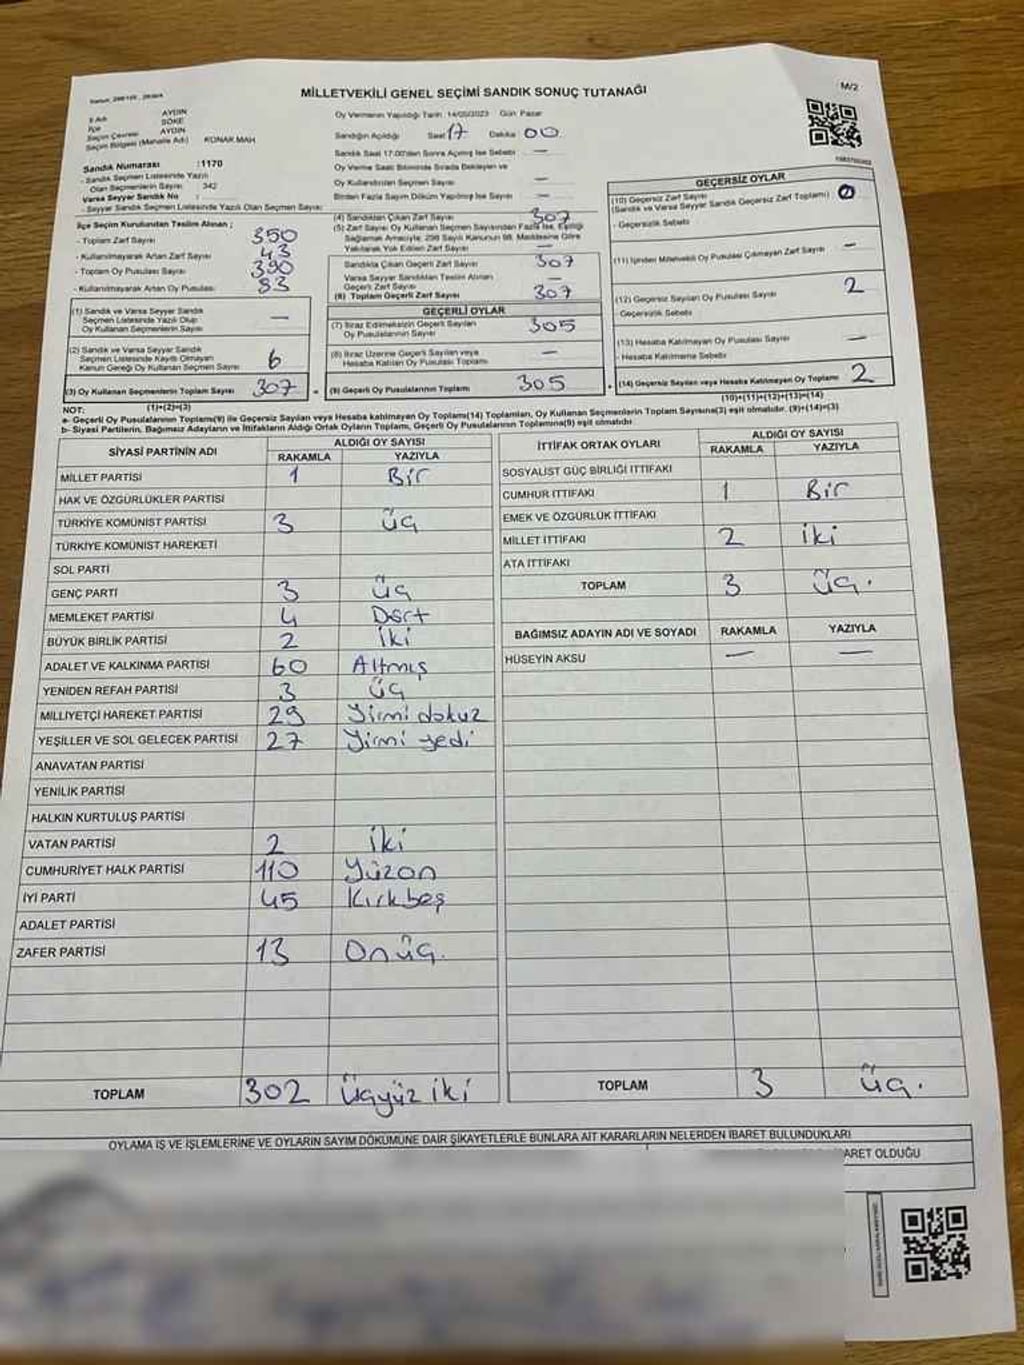 MİLLETVEKİLİ GENEL SEÇİMİ SANDIK SONUÇ TUTANAĞI
M/2
İl Adı AYDIN
İlçe SÖKE
Seçim Çevresi AYDIN
Seçim Bölgesi (Mahalle Adı) KONAK MAH
Sandık Numarası :1170
- Sandık Seçmen Listesinde Yazılı
Olan Seçmenlerin Sayısı : 342
Varsa Seyyar Sandık No :
- Seyyar Sandık Seçmen Listesinde Yazılı Olan Seçmen Sayısı:
Oy Vermenin Yapıldığı Tarih : 14/05/2023 Gün Pazar
Sandığın Açıldığı Saat 17 Dakika 00
Sandık Saat 17:00'den Sonra Açılmış İse Sebebi —
Oy Verme Saati Bitiminde Sırada Bekleyen ve
Oy Kullandırılan Seçmen Sayısı —
Birden Fazla Sayım Döküm Yapılmış İse Sayısı —
İlçe Seçim Kurulundan Teslim Alınan ;
- Toplam Zarf Sayısı 350
- Kullanılmayarak Artan Zarf Sayısı 43
- Toplam Oy Pusulası Sayısı 390
- Kullanılmayarak Artan Oy Pusulası 83
(1) Sandık ve Varsa Seyyar Sandık
Seçmen Listesinde Yazılı Olup
Oy Kullanan Seçmenlerin Sayısı —
(2) Sandık ve Varsa Seyyar Sandık
Seçmen Listesinde Kayıtlı Olmayan
Kanun Gereği Oy Kullanan Seçmen Sayısı 6
(3) Oy Kullanan Seçmenlerin Toplam Sayısı 307
(1)+(2)=(3)
(4) Sandıktan Çıkan Zarf Sayısı 307
(5) Zarf Sayısı Oy Kullanan Seçmen Sayısından Fazla İse, Eşitliği
Sağlamak Amacıyla, 298 Sayılı Kanunun 98. Maddesine Göre
Yakılarak Yok Edilen Zarf Sayısı —
Sandıkta Çıkan Geçerli Zarf Sayısı 307
Varsa Seyyar Sandıktan Teslim Alınan
Geçerli Zarf Sayısı —
(6) Toplam Geçerli Zarf Sayısı 307
GEÇERLİ OYLAR
(7) İtiraz Edilmeksizin Geçerli Sayılan
Oy Pusulalarının Sayısı 305
(8) İtiraz Üzerine Geçerli Sayılan veya
Hesaba Katılan Oy Pusulası Toplamı —
(9) Geçerli Oy Pusulalarının Toplamı 305
GEÇERSİZ OYLAR
(10) Geçersiz Zarf Sayısı 0
(Sandık ve Varsa Seyyar Sandık Geçersiz Zarf Toplamı)
- Geçersizlik Sebebi
(11) İçinden Milletvekili Oy Pusulası Çıkmayan Zarf Sayısı —
(12) Geçersiz Sayılan Oy Pusulası Sayısı 2
- Geçersizlik Sebebi
(13) Hesaba Katılmayan Oy Pusulası Sayısı —
- Hesaba Katılmama Sebebi
(14) Geçersiz Sayılan veya Hesaba Katılmayan Oy Toplamı 2
(10)+(11)+(12)+(13)=(14)
NOT:
a- Geçerli Oy Pusulalarının Toplamı(9) ile Geçersiz Sayılan veya Hesaba katılmayan Oy Toplamı(14) Toplamları, Oy Kullanan Seçmenlerin Toplam Sayısına(3) eşit olmalıdır. (9)+(14)=(3)
b- Siyasi Partilerin, Bağımsız Adayların ve İttifakların Aldığı Ortak Oyların Toplamı, Geçerli Oy Pusulalarının Toplamına(9) eşit olmalıdır
SİYASİ PARTİNİN ADI ALDIĞI OY SAYISI
RAKAMLA YAZIYLA
MİLLET PARTİSİ 1 Bir
HAK VE ÖZGÜRLÜKLER PARTİSİ
TÜRKİYE KOMÜNİST PARTİSİ 3 üç
TÜRKİYE KOMÜNİST HAREKETİ
SOL PARTİ
GENÇ PARTİ 3 üç
MEMLEKET PARTİSİ 4 Dört
BÜYÜK BİRLİK PARTİSİ 2 İki
ADALET VE KALKINMA PARTİSİ 60 Altmış
YENİDEN REFAH PARTİSİ 3 üç
MİLLİYETÇİ HAREKET PARTİSİ 29 Yirmi dokuz
YEŞİLLER VE SOL GELECEK PARTİSİ 27 Yirmi yedi
ANAVATAN PARTİSİ
YENİLİK PARTİSİ
HALKIN KURTULUŞ PARTİSİ
VATAN PARTİSİ 2 İki
CUMHURİYET HALK PARTİSİ 110 Yüzon
İYİ PARTİ 45 Kırkbeş
ADALET PARTİSİ
ZAFER PARTİSİ 13 Onüç.
TOPLAM 302 Üçyüz iki
İTTİFAK ORTAK OYLARI ALDIĞI OY SAYISI
RAKAMLA YAZIYLA
SOSYALİST GÜÇ BİRLİĞİ İTTİFAKI
CUMHUR İTTİFAKI 1 Bir
EMEK VE ÖZGÜRLÜK İTTİFAKI
MİLLET İTTİFAKI 2 İki
ATA İTTİFAKI
TOPLAM 3 üç.
BAĞIMSIZ ADAYIN ADI VE SOYADI RAKAMLA YAZIYLA
HÜSEYİN AKSU — —
TOPLAM 3 üç.
OYLAMA İŞ VE İŞLEMLERİNE VE OYLARIN SAYIM DÖKÜMÜNE DAİR ŞİKAYETLERLE BUNLARA AİT KARARLARIN NELERDEN İBARET BULUNDUKLARI
OLDUĞU